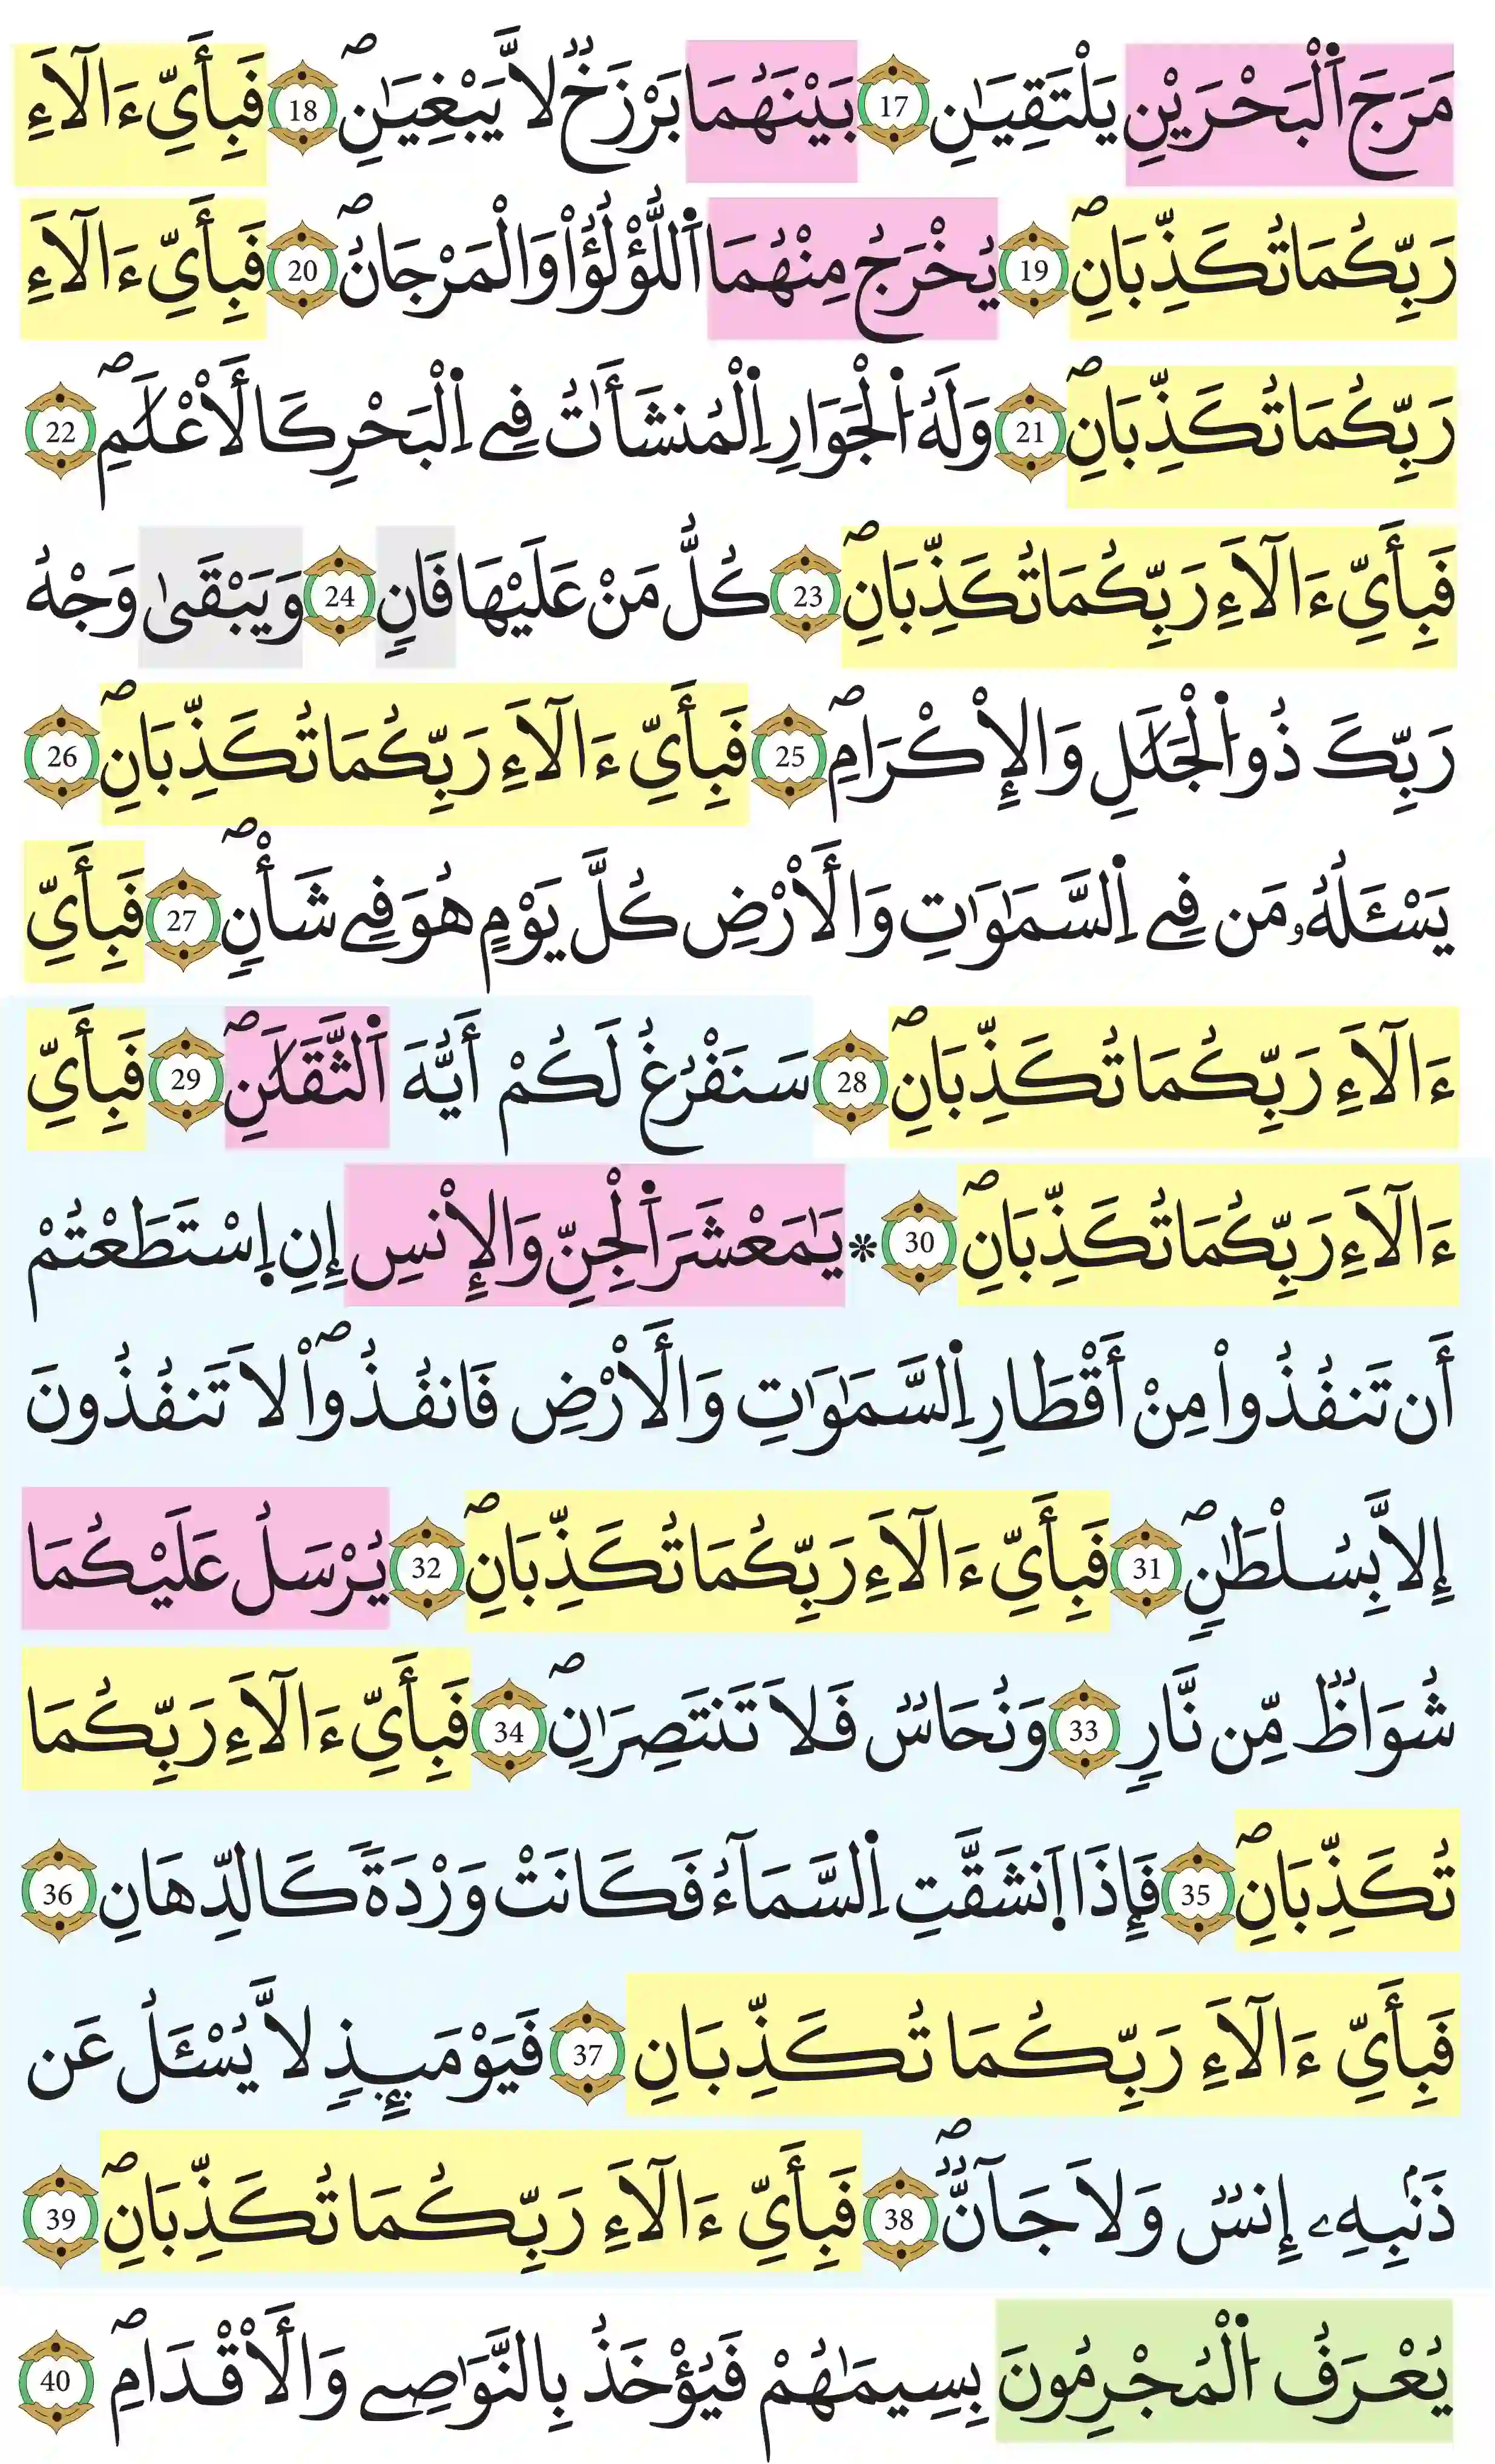 مَرَجَ اَ۬لْبَحْرَيْنِ يَلْتَقِيَٰنِ 17 بَيْنَهُمَا بَرْزَخٞ لَّا يَبْغِيَٰنِۖ 18 فَبِأَيِّ ءَالَآءِ
رَبِّكُمَا تُكَذِّبَانِۖ 19 يُخْرَجُ مِنْهُمَا اَ۬للُّؤْلُؤُاْ وَالْمَرْجَانُۖ 20 فَبِأَيِّ ءَالَآءِ
رَبِّكُمَا تُكَذِّبَانِۖ 21 وَلَهُ اُ۬لْجَوَارِ اِ۬لْمُنشَـَٔاتُ فِے اِ۬لْبَحْرِ كَالَأعْلَٰمِۖ 22
فَبِأَيِّ ءَالَآءِ رَبِّكُمَا تُكَذِّبَانِۖ 23 كُلُّ مَنْ عَلَيْهَا فَانٖ 24 وَيَبْقَىٰ وَجْهُ
رَبِّكَ ذُو اُ۬لْجَلَٰلِ وَالِاكْرَامِۖ 25 فَبِأَيِّ ءَالَآءِ رَبِّكُمَا تُكَذِّبَانِۖ 26
يَسْـَٔلُهُۥ مَن فِے اِ۬لسَّمَٰوَٰتِ وَالَارْضِ كُلَّ يَوْمٍ هُوَ فِے شَأْنٖۖ 27 فَبِأَيِّ
ءَالَآءِ رَبِّكُمَا تُكَذِّبَانِۖ 28 سَنَفْرُغُ لَكُمْ أَيُّهَ اَ۬لثَّقَلَٰنِۖ 29 فَبِأَيِّ
ءَالَآءِ رَبِّكُمَا تُكَذِّبَانِۖ 30 * يَٰمَعْشَرَ اَ۬لْجِنِّ وَالِانسِ إِنِ اِ۪سْتَطَعْتُمْ
أَن تَنفُذُواْ مِنْ أَقْطَارِ اِ۬لسَّمَٰوَٰتِ وَالَارْضِ فَانفُذُواْۖ لَا تَنفُذُونَ
إِلَّا بِسُلْطَٰنٖۖ 31 فَبِأَيِّ ءَالَآءِ رَبِّكُمَا تُكَذِّبَانِۖ 32 يُرْسَلُ عَلَيْكُمَا
شُوَاظٞ مِّن نَّارٖ 33 وَنُحَاسٞ فَلَا تَنتَصِرَٰنِۖ 34 فَبِأَيِّ ءَالَآءِ رَبِّكُمَا
تُكَذِّبَانِۖ 35 فَإِذَا اَ۪نشَقَّتِ اِ۬لسَّمَآءُ فَكَانَتْ وَرْدَةٗ كَالدِّهَانِ 36
فَبِأَيِّ ءَالَآءِ رَبِّكُمَا تُكَذِّبَانِ 37 فَيَوْمَئِذٖ لَّا يُسْـَٔلُ عَن
ذَنۢبِهِۦ إِنسٞ وَلَا جَآنّٞۖ 38 فَبِأَيِّ ءَالَآءِ رَبِّكُمَا تُكَذِّبَانِۖ 39
يُعْرَفُ اُ۬لْمُجْرِمُونَ بِسِيمَٰهُمْ فَيُؤْخَذُ بِالنَّوَٰصِے وَالَاقْدَامِۖ 40